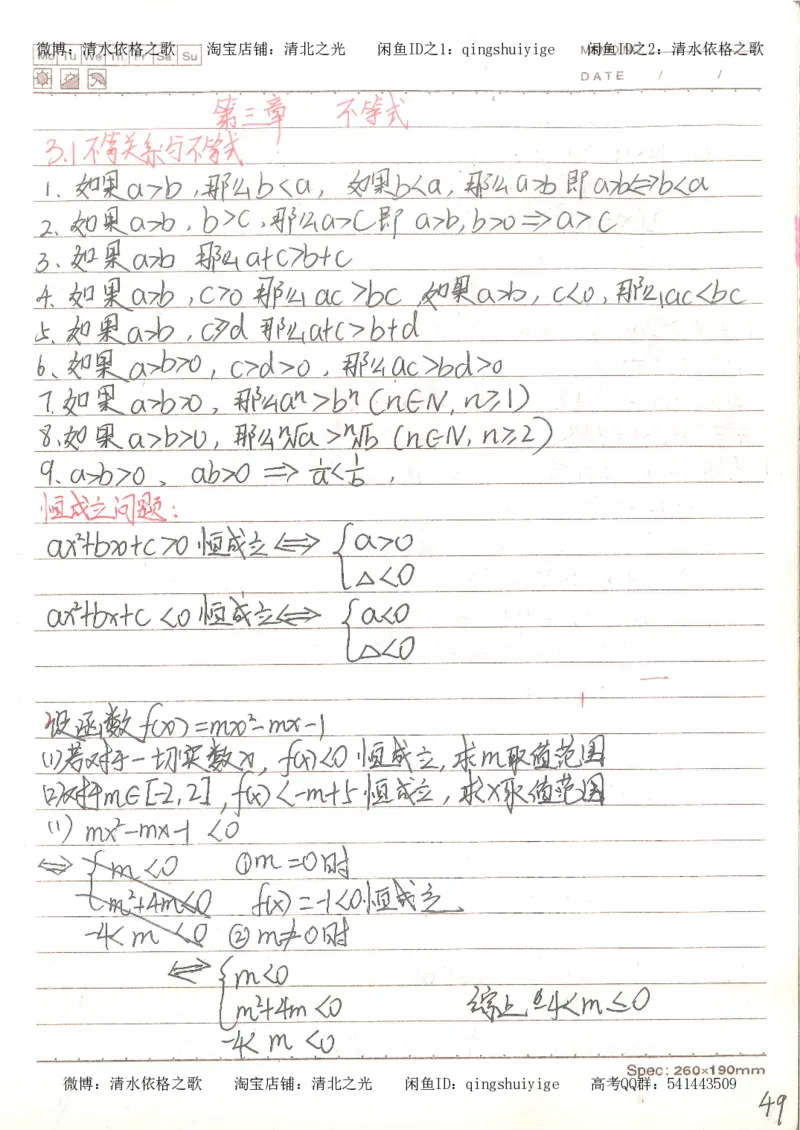 微博：清水依格之歌 淘宝店铺：清北之光 闲鱼ID之1：qingshuiyige 闲鱼ID之2：清水依格之歌
Mo Tu We Th Fr Sa Su
DATE / /
第三章 不等式
3.1不等关系与不等式
1、如果a>b，那么b<a，如果b<a，那么a>b即a>b⇔b<a
2、如果a>b，b>c，那么a>c即 a>b,b>0⇒a>c
3、如果a>b 那么a+c>b+c
4、如果a>b，c>0那么ac>bc 如果a>b，c<0，那么ac<bc
5、如果a>b，c>d 那么a+c>b+d
6、如果a>b>0，c>d>0，那么ac>bd>0
7.如果a>b>0，那么aⁿ>bⁿ(n∈N,n≥1)
8.如果a>b>0，那么ⁿ√a>ⁿ√b (n∈N,n≥2)
9.a>b>0、ab>0⇒1/a<1/b，
恒成立问题：
ax²+bx+c>0恒成立⇔{a>0
△<0
ax²+bx+c<0恒成立⇔{a<0
△<0
设函数f(x)=mx²-mx-1
(1)若对于一切实数x，f(x)<0恒成立，求m取值范围
(2)对于m∈[-2,2]，f(x)<-m+5恒成立，求x取值范围
(1) mx²-mx-1<0
⇔{m<0 ①m=0时
m²+4m<0 f(x)=-1<0恒成立、
-4<m<0 ②m≠0时
⇔{m<0
m²+4m<0 综上 -4<m≤0
-4<m<0
Spec: 260×190mm
微博：清水依格之歌 淘宝店铺：清北之光 闲鱼ID：qingshuiyige 高考QQ群：541443509
49